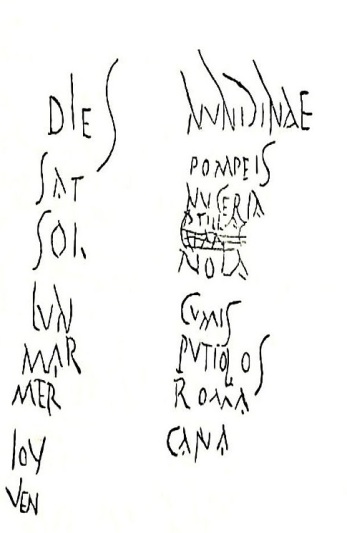 DIES NVNDINAE
SAT POMPEIS
NVCERIA
ATILLA
SOL
NOLA
LVN CVMIS
MAR PVTIOLOS
MER ROMA
IOV CAPVA
VEN